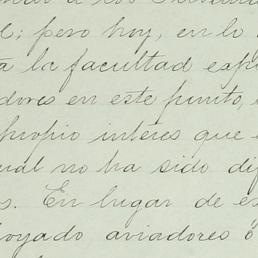 l; pero hoy, en lo
a la facultad espe
dores en este punto,
propio interes que
ual no ha sido dif
s. En lugar de es
oyado aviadores ó